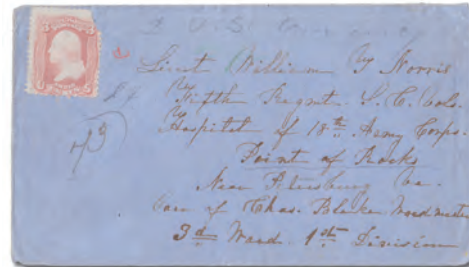 Lieut William G Norris
Regmt. S. C. Vols.
Hospital of 18th Army Corps.
Point of Rocks
Near Petersburg Va.
Care of Chas. Blake Ward master
3d Ward. 1st Division